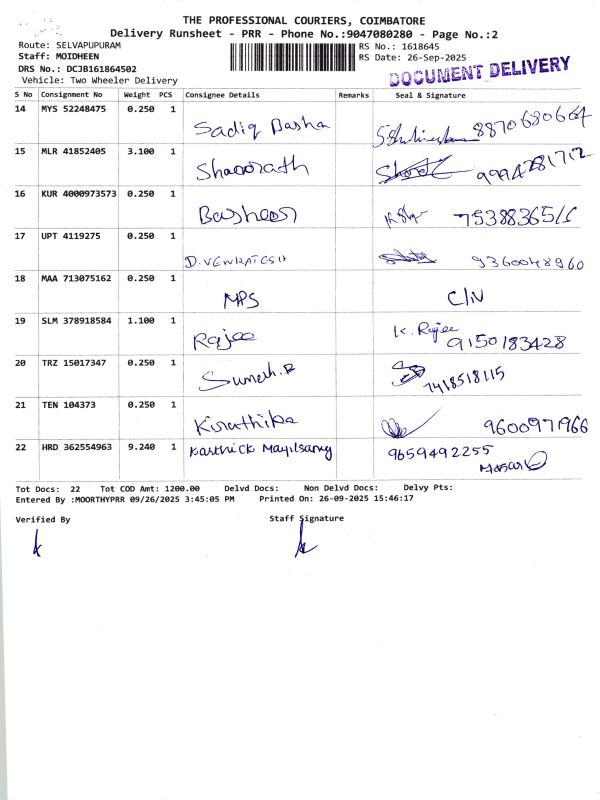 THE PROFESSIONAL COURIERS, COIMBATORE
Delivery Runsheet - PRR - Phone No.:9047080280 - Page No.:2
Route: SELVAPUPURAM
RS No.: 1618645
Staff: MOIDHEEN
RS Date: 26-Sep-2025
DRS No.: DCJB161864502
Vehicle: Two Wheeler Delivery
DOCUMENT DELIVERY
S No Consignment No Weight PCS Consignee Details Remarks Seal & Signature
14 MYS 52248475 0.250 1 Sadiq Basha 8870680664
15 MLR 41852405 3.100 1 9994281712
16 KUR 4000973573 0.250 1 Basheer
17 UPT 4119275 0.250 1 D. VENKATESH 9360048960
18 MAA 713075162 0.250 1 MPS
19 SLM 378918584 1.100 1 Rajee K. Rajee 9150183428
20 TRZ 15017347 0.250 1 7418518115
21 TEN 104373 0.250 1 Kiruthika 9600971966
22 HRD 362554963 9.240 1 Karthick Mayilsamy 9659492255
Tot Docs: 22 Tot COD Amt: 1200.00 Delvd Docs: Non Delvd Docs: Delvy Pts:
Entered By :MOORTHYPRR 09/26/2025 3:45:05 PM Printed On: 26-09-2025 15:46:17
Verified By Staff Signature